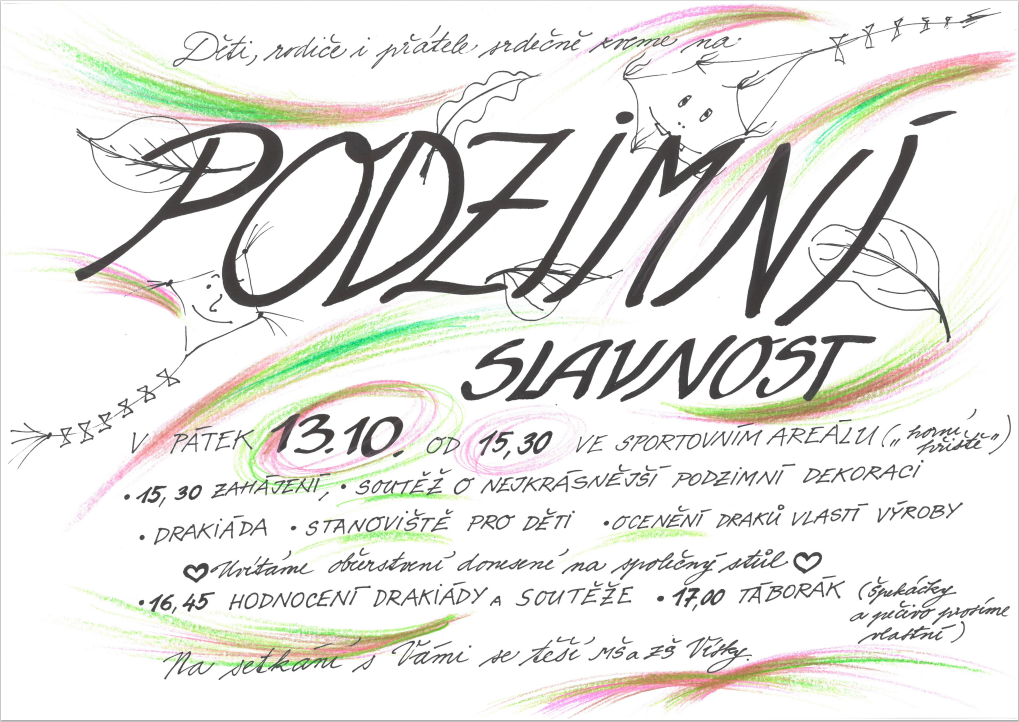 Děti, rodiče i přátele srdečně zveme na:
PODZIMNÍ
SLAVNOST
V PÁTEK 13.10. OD 15,30 VE SPORTOVNÍM AREÁLU („horní hřiště")
• 15,30 ZAHÁJENÍ, • SOUTĚŽ O NEJKRÁSNĚJŠÍ PODZIMNÍ DEKORACI
• DRAKIÁDA • STANOVIŠTĚ PRO DĚTI • OCENĚNÍ DRAKŮ VLASTÍ VÝROBY
♡ Uvítáme občerstvení donesené na společný stůl ♡
• 16,45 HODNOCENÍ DRAKIÁDY A SOUTĚŽE • 17,00 TÁBORÁK (špekáčky
a pečivo prosíme
vlastní)
Na setkání s Vámi se těší MŠ a ZŠ Vísky.